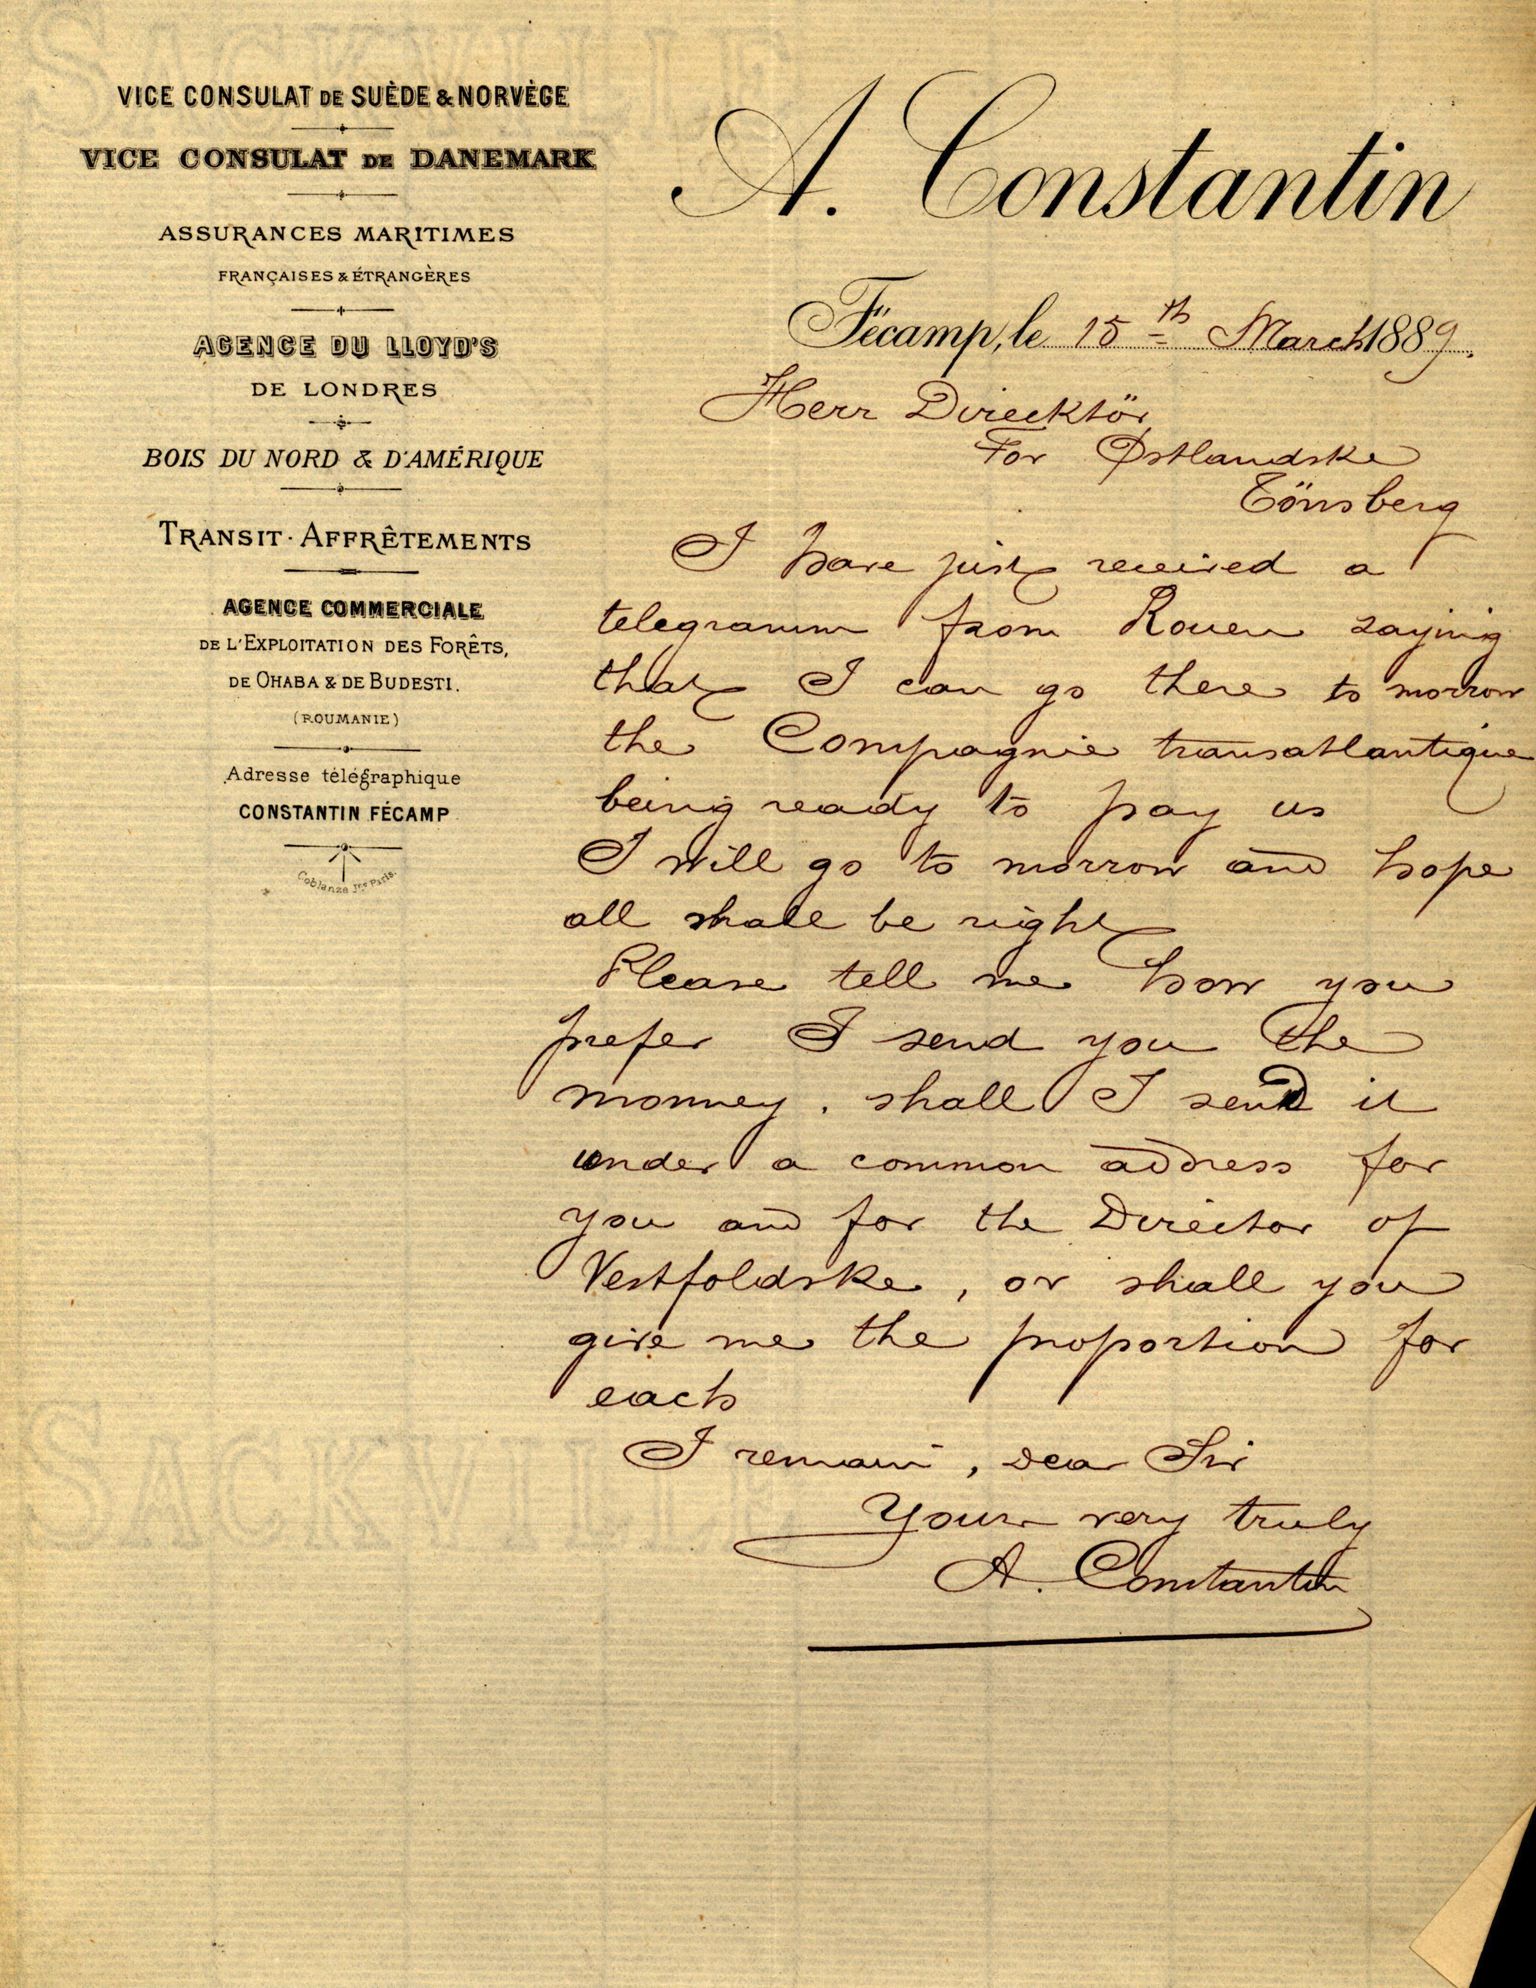 SACKVILLE
VICE CONSULAT DE SUÈDE & NORVÈGE
VICE CONSULAT DE DANEMARK
ASSURANCES MARITIMES
FRANÇAISES & ÉTRANGÈRES
AGENCE DU LLOYD'S
DE LONDRES
BOIS DU NORD & D'AMÉRIQUE
TRANSIT · AFFRÊTEMENTS
AGENCE COMMERCIALE
DE L'EXPLOITATION DES FORÊTS,
DE OHABA & DE BUDESTI.
(ROUMANIE)
Adresse télégraphique
CONSTANTIN FÉCAMP
Coblanze Jne Paris.
A. Constantin
Fécamp, le 15th March 1889.
Herr Direcktör
For Østlandske
Tönsberg
I have just received a
telegramm from Rouen saying
that I can go there to morrow
the Compagnie transatlantique
being ready to pay us
I will go to morrow and hope
all shall be right
Please tell me how you
prefer I send you the
monney. shall I send it
under a common address for
you and for the Director of
Vestfoldske, or shall you
give me the proportion for
each
I remain, dear Sir
Yours very truly
A. Constantin
SACKVILLE